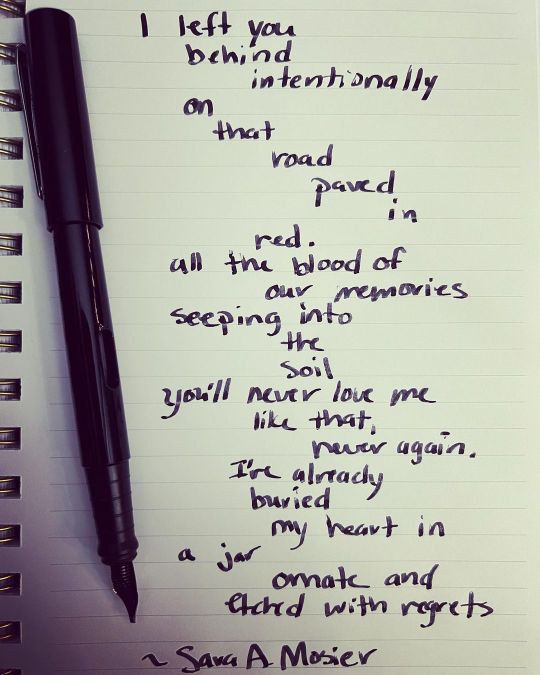 I left you
behind
intentionally
on
that
road
paved
in
red.
all the blood of
our memories
seeping into
the
soil
you'll never love me
like that,
never again.
I've already
buried
my heart in
a jar
ornate and
Etched with regrets
~ Sara A Mosier